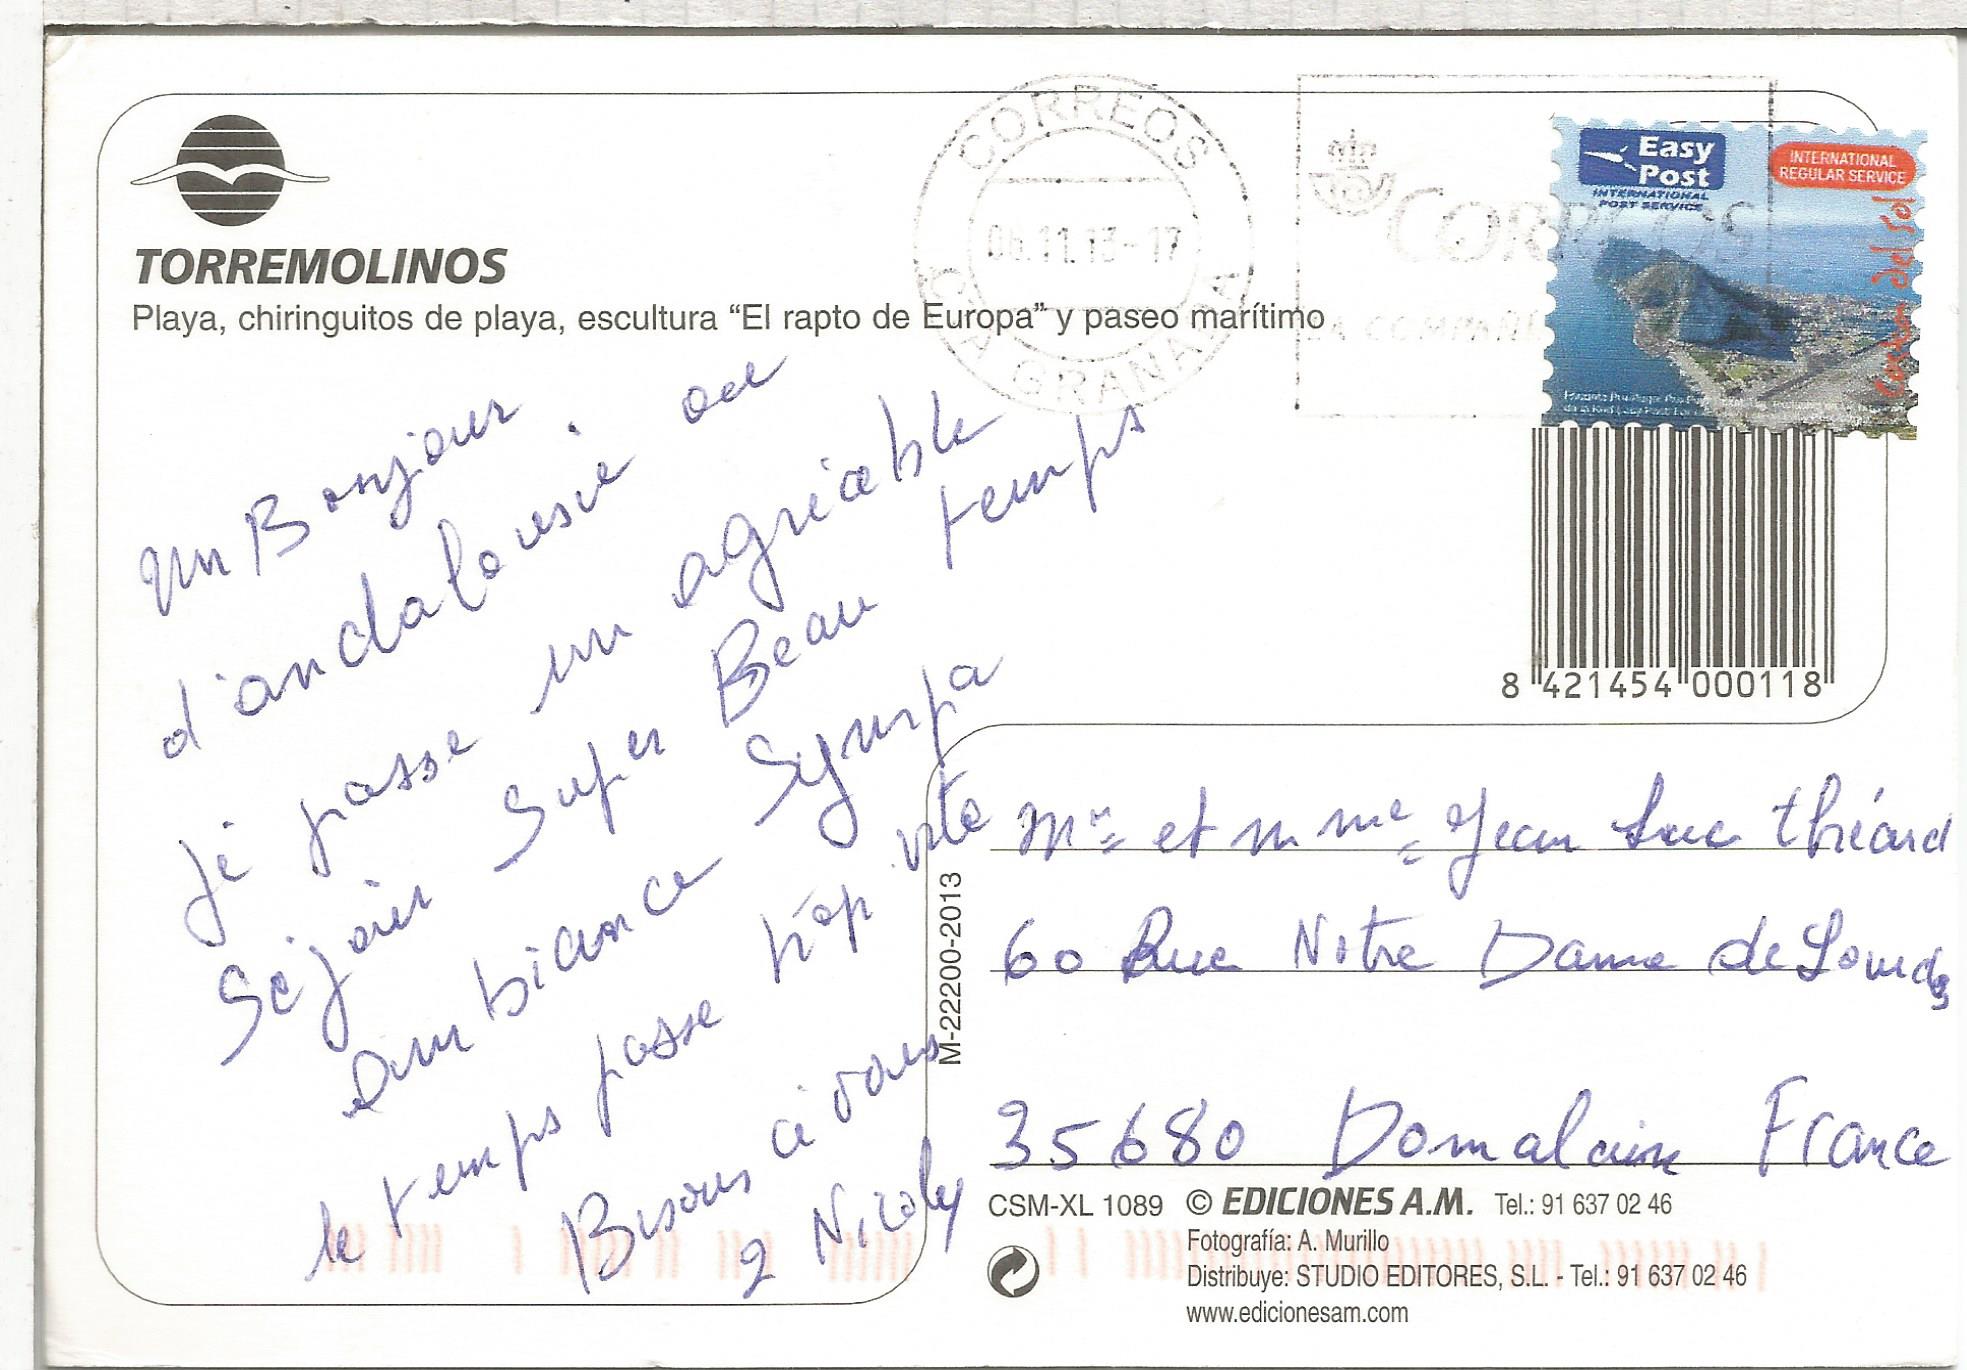 TORREMOLINOS
Playa, chiringuitos de playa, escultura “El rapto de Europa” y paseo marítimo
CORREOS
06.11.13-17
GRANADA
CORREOS
Easy
Post
INTERNATIONAL
POST SERVICE
INTERNATIONAL
REGULAR SERVICE
Costa del Sol
8 421454 000118
un Bonjour
d'andalousie ou
je passe un agréable
Séjour Super Beau temps
Ambiance Sympa
le temps passe trop vite
Bisous à vous
2 Nicoly
M-22200-2013
Mr et Mme Jean Luc Théard
60 Rue Notre Dame de Lourdes
35680 Domalain France
CSM-XL 1089 © EDICIONES A.M. Tel.: 91 637 02 46
Fotografía: A. Murillo
Distribuye: STUDIO EDITORES, S.L. - Tel.: 91 637 02 46
www.edicionesam.com